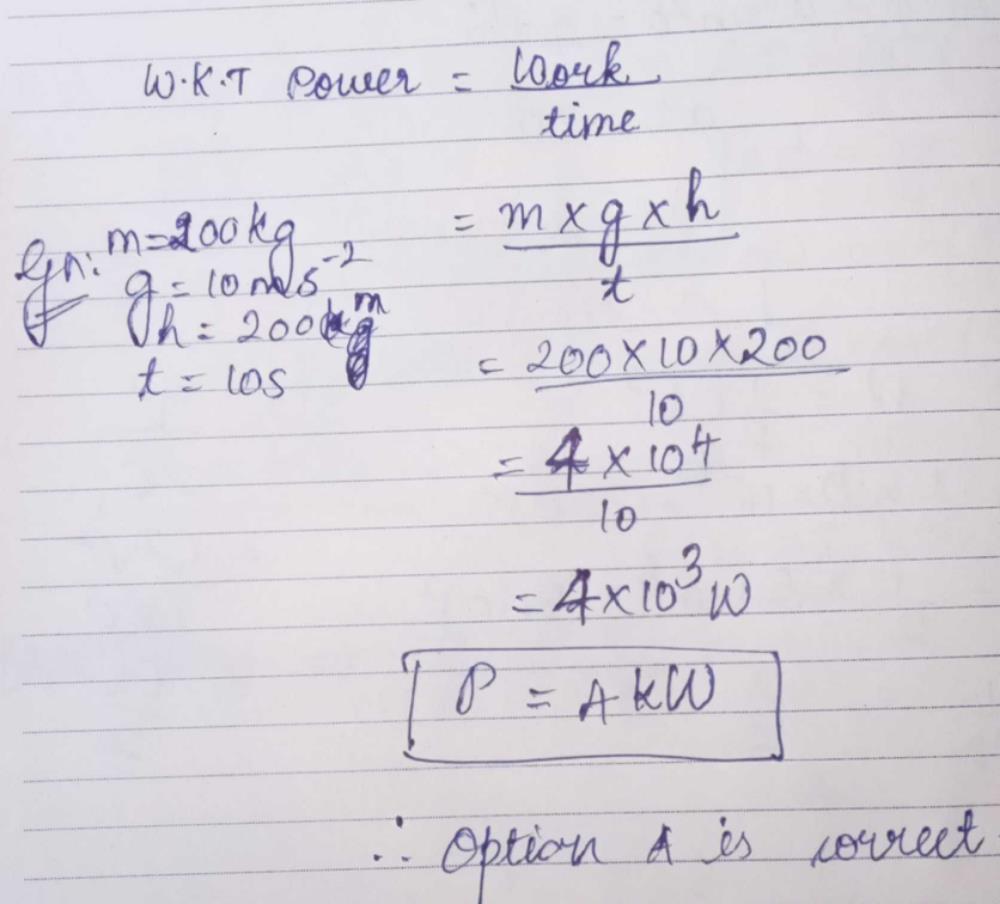 W.K.T Power = Work
time
Gn: m=200kg
g = 10 ms⁻²
h = 200 m
t = 10s
= m x g x h
t
= 200 X 10 X 200
10
= 4 x 10⁴
10
= 4 x 10³ W
P = 4 kW
∴ Option A is correct